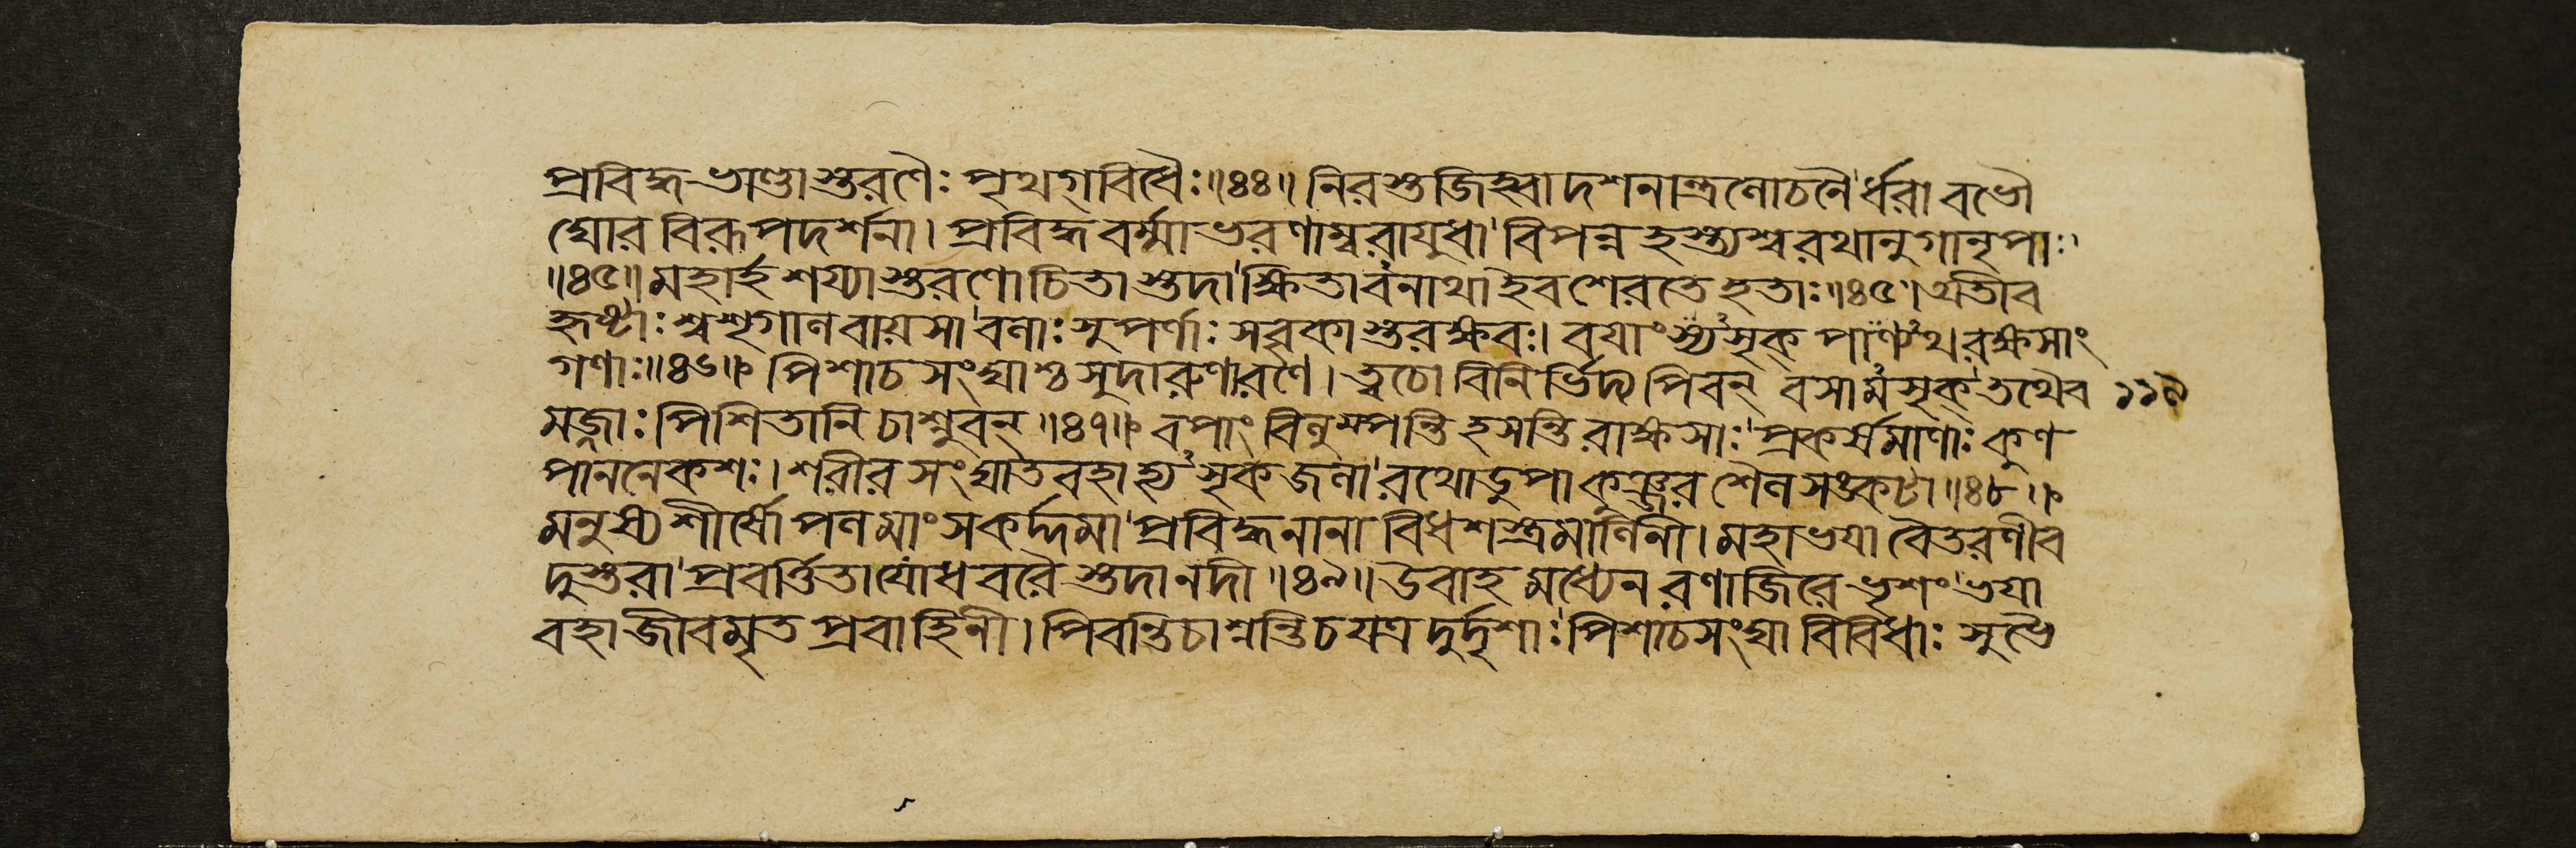 প্রবিদ্ধভাণ্ডাস্তরণৈঃ পৃথগ্বিধৈঃ॥৪৪॥ নিরস্তজিহ্বাদশনান্ত্রলোচনৈর্ধরা বভৌ
ঘোরবিরূপদর্শনা। প্রবিদ্ধবর্ম্মাভরণাম্বরায়ুধা বিপন্নহস্ত্যশ্বরথানুগানৃপাঃ
॥৪৫॥ মহার্হশয্যাস্তরণোচিতাস্তদা ক্ষিতাবনাথাইবশেরতেহতাঃ॥৪৫॥ অতীব
হৃষ্টাঃ শ্বশৃগালবায়সা বলাঃ সুপর্ণাঃ সবৃকাস্তরক্ষবঃ। বয়াংস্যসৃক্ পান্যথরক্ষসাং
গণাঃ॥৪৬॥ পিশাচসংঘাশ্চসুদারুণারণে। ত্বচোবিনির্ভিদ্য পিবন্ বসামসৃক্ তথৈব ১১৯
মজ্জাঃ পিশিতানিচাশ্নুবন্॥৪৭॥ বপাংবিলুম্পন্তি হসন্তি রাক্ষসাঃ প্রকর্ষমাণাঃ কুণ
পাননেকশঃ। শরীরসংঘাতবহাহ্যসৃকজলা রথোডুপাকুঞ্জরশৈলসঙ্কটা॥৪৮॥
মনুষ্যশীর্ষোপলমাংসকর্দ্দমা প্রবিদ্ধনানাবিধশস্ত্রমালিনী। মহাভয়া বৈতরণীব
দুস্তরা প্রবর্ত্তিতাযোধবরৈস্তদানদী॥৪৯॥ উবাহমধ্যেনরণাজিরেভৃশং ভয়া
বহাজীবমৃতপ্রবাহিনী। পিবন্তিচাশ্নন্তিচযত্রদুর্দৃশাঃ পিশাচসংঘা বিবিধাঃ সুভৈ